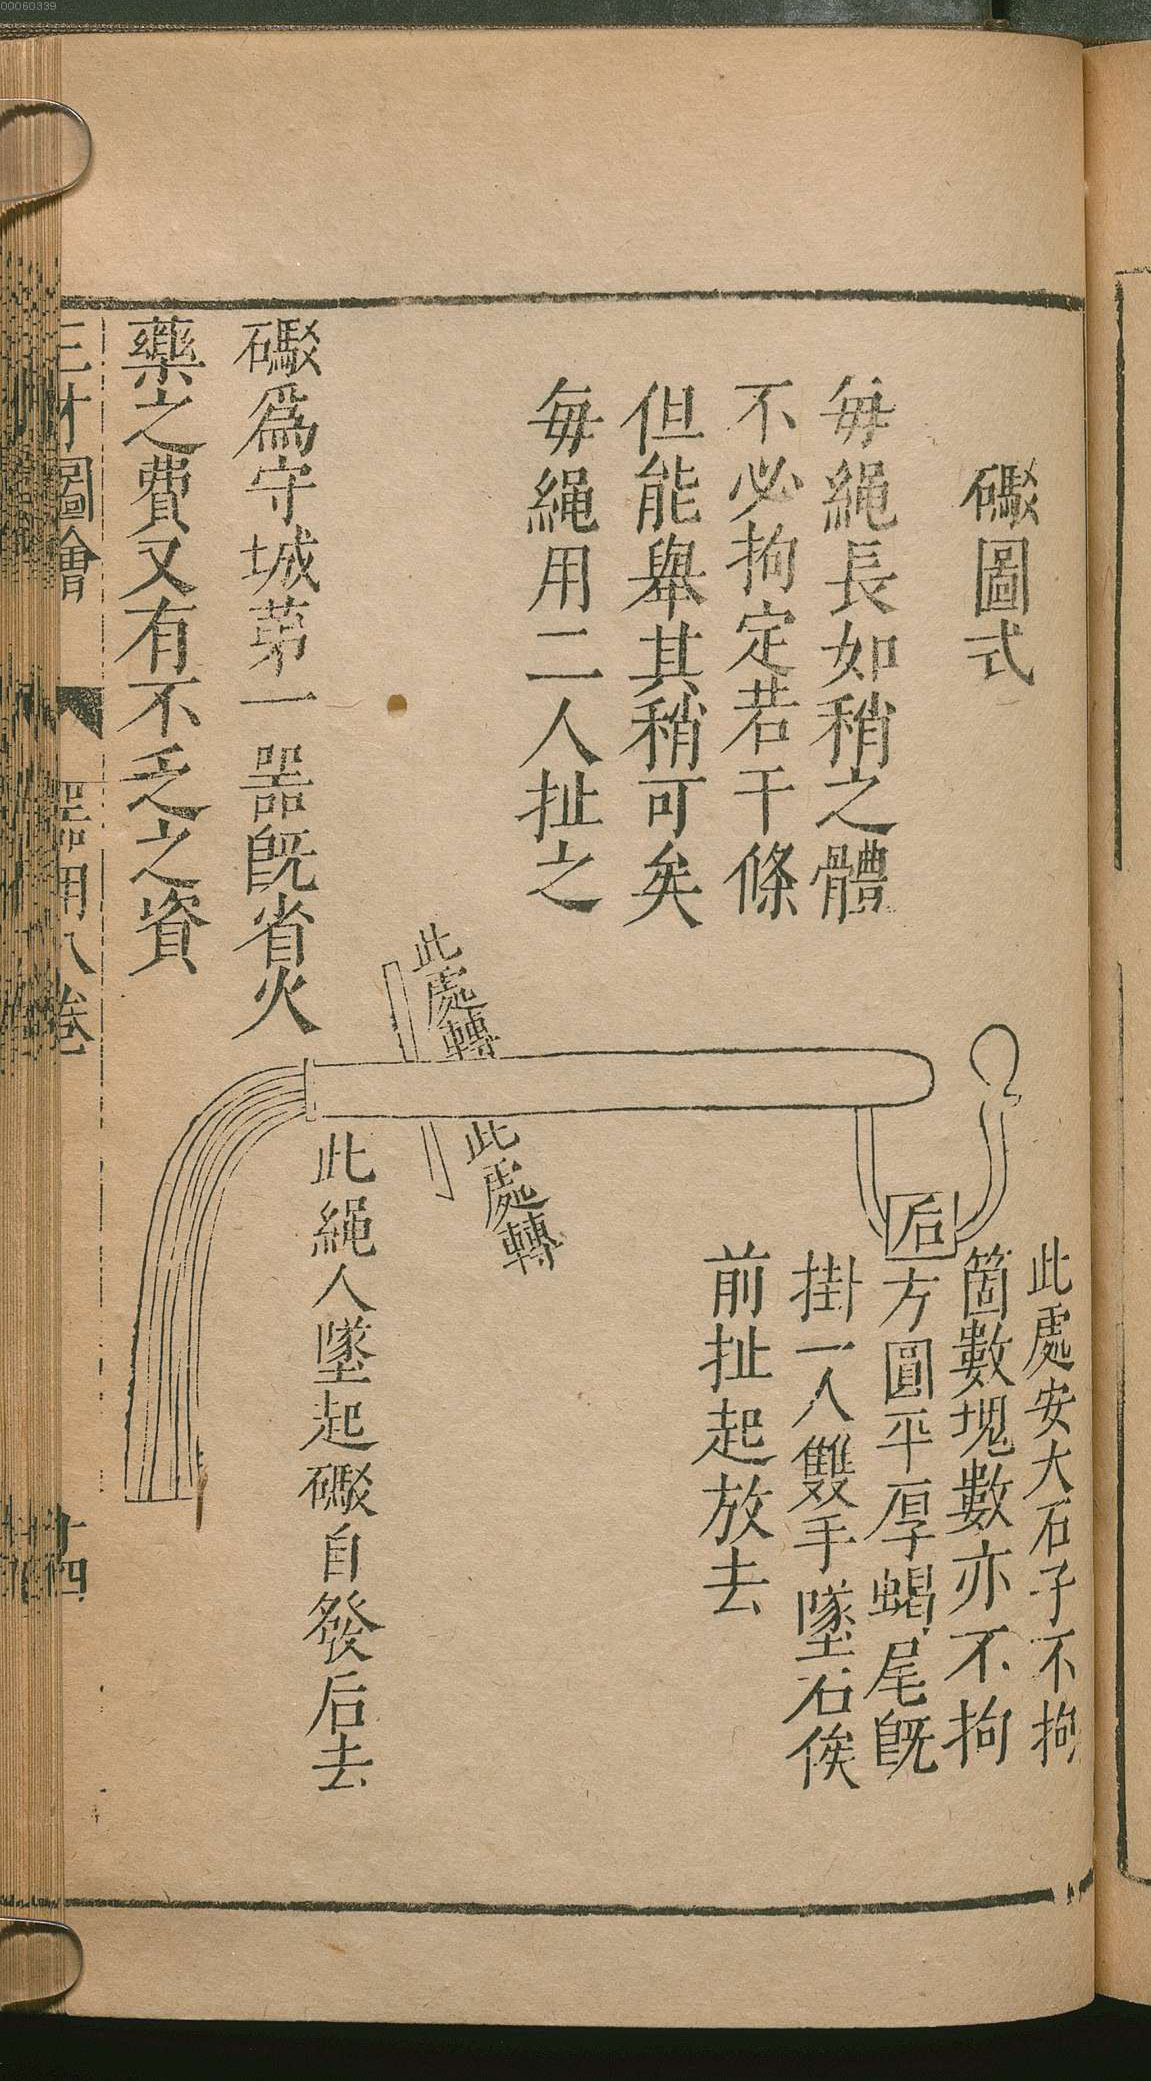 00060339
礮圖式
每繩長如稍之體
不必拘定若干條
但能舉其稍可矣
每繩用二人扯之
此處安大石子不拘
箇數塊數亦不拘
后方圓平厚蝎尾旣
掛一人雙手墜石俟
前扯起放去
此處轉
此處轉
此繩人墜起礮自發后去
礮爲守城第一噐旣省火
藥之費又有不乏之資
三才圖會
器用八卷
十四